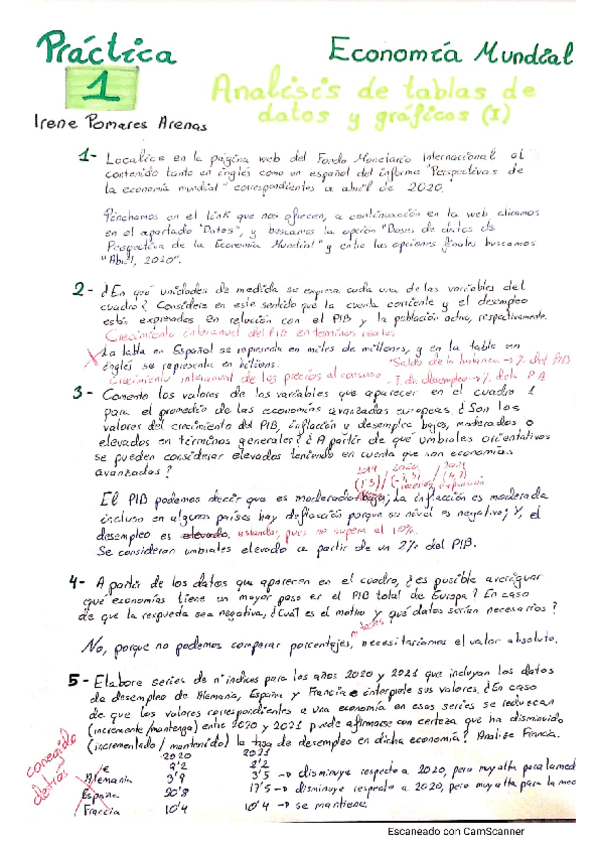 Práctica
1
Economía Mundial
Analisis de tablas de
datos y gráficos (I)
Irene Pomares Arenas
1- Localice en la página web del Fondo Monetario Internacional el
contenido tanto en inglés como en español del informe "Perspectivas de
la economía mundial" correspondientes a abril de 2020.
Pinchamos en el link que nos ofrecen, a continuación en la web clicamos
en el apartado "Datos", y buscamos la opción "Bases de datos de
Perspectiva de la Economía Mundial" y entre las opciones finales buscamos
"Abril, 2020".
2- ¿En qué unidades de medida se expresa cada una de las variables del
cuadro? Considere en este sentido que la cuenta corriente y el desempleo
están expresados en relación con el PIB y la población activa, respectivamente.
Crecimiento interanual del PIB en términos reales
La tabla en Español se representa en miles de millones, y en la tabla en
inglés se representa en billions.
- Saldo de la balanza → % del PIB
Crecimiento interanual de los precios al consumo
- T. de desempleo → % de la P A
3- Comente los valores de las variables que aparecen en el cuadro 1
para el promedio de las economías avanzadas europeas. ¿Son los
valores del crecimiento del PIB, inflación y desempleo bajos, moderados o
elevados en términos generales? ¿A partir de qué umbrales orientativos
se pueden considerar elevados teniendo en cuenta que son economías
avanzadas?
2019 2020 2021
El PIB podemos decir que es moderado bajo; La inflación es moderada
incluso en algunos países hay deflación porque su nivel es negativo; Y, el
desempleo es elevado. estandar, pues no supera el 10%.
Se consideran umbrales elevado a partir de un 2% del PIB.
4- A partir de los datos que aparecen en el cuadro, ¿es posible averiguar
qué economías tiene un mayor peso en el PIB total de Europa? En caso
de que la respuesta sea negativa, ¿Cuál es el motivo y qué datos serían necesarios?
No, porque no podemos comparar porcentajes, necesitaríamos el valor absoluto.
5- Elabore series de nº indices para los años 2020 y 2021 que incluyan los datos
de desempleo de Alemania, España y Francia e interprete sus valores. ¿En caso
de que los valores correspondientes a una economía en esas series se reduzcan
(incremente/mantenga) entre 2020 y 2021 puede afirmarse con certeza que ha disminuido
(incrementado / mantenido) la tasa de desempleo en dicha economía? Analice Francia.
corregido
detrás
2020 2021
Alemania 3'9 3'5 → disminuye respecto a 2020, pero muy alta para la med
España 20'8 17'5 → disminuye respecto a 2020, pero muy alta para la med
Francia 10'4 10'4 → se mantiene.
Escaneado con CamScanner